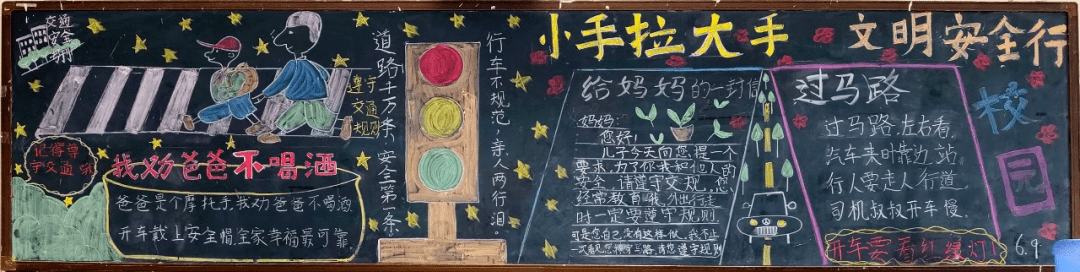 交通
安全
小手拉大手
文明安全行
校园
遵守
交通
规则
道路千万条,安全第一条
行车不规范,亲人两行泪。
记得尊
守交通哦
我劝爸爸不喝酒
爸爸是个摩托手,我劝爸爸不喝酒
开车戴上安全帽,全家幸福最可靠.
给妈妈的一封信
妈妈:
您好!
儿子今天向您提一个
要求,为了你我和他人的
安全,请遵守交规,您
经常教育哦,外出行走
时一定要遵守规则
可是您自己没有这样做,我不止
一次看见您横穿马路,请您遵守规则
过马路
过马路,左右看,
汽车来时靠边站,
行人要走人行道,
司机叔叔开车慢,
开车要看红绿灯!
6.9